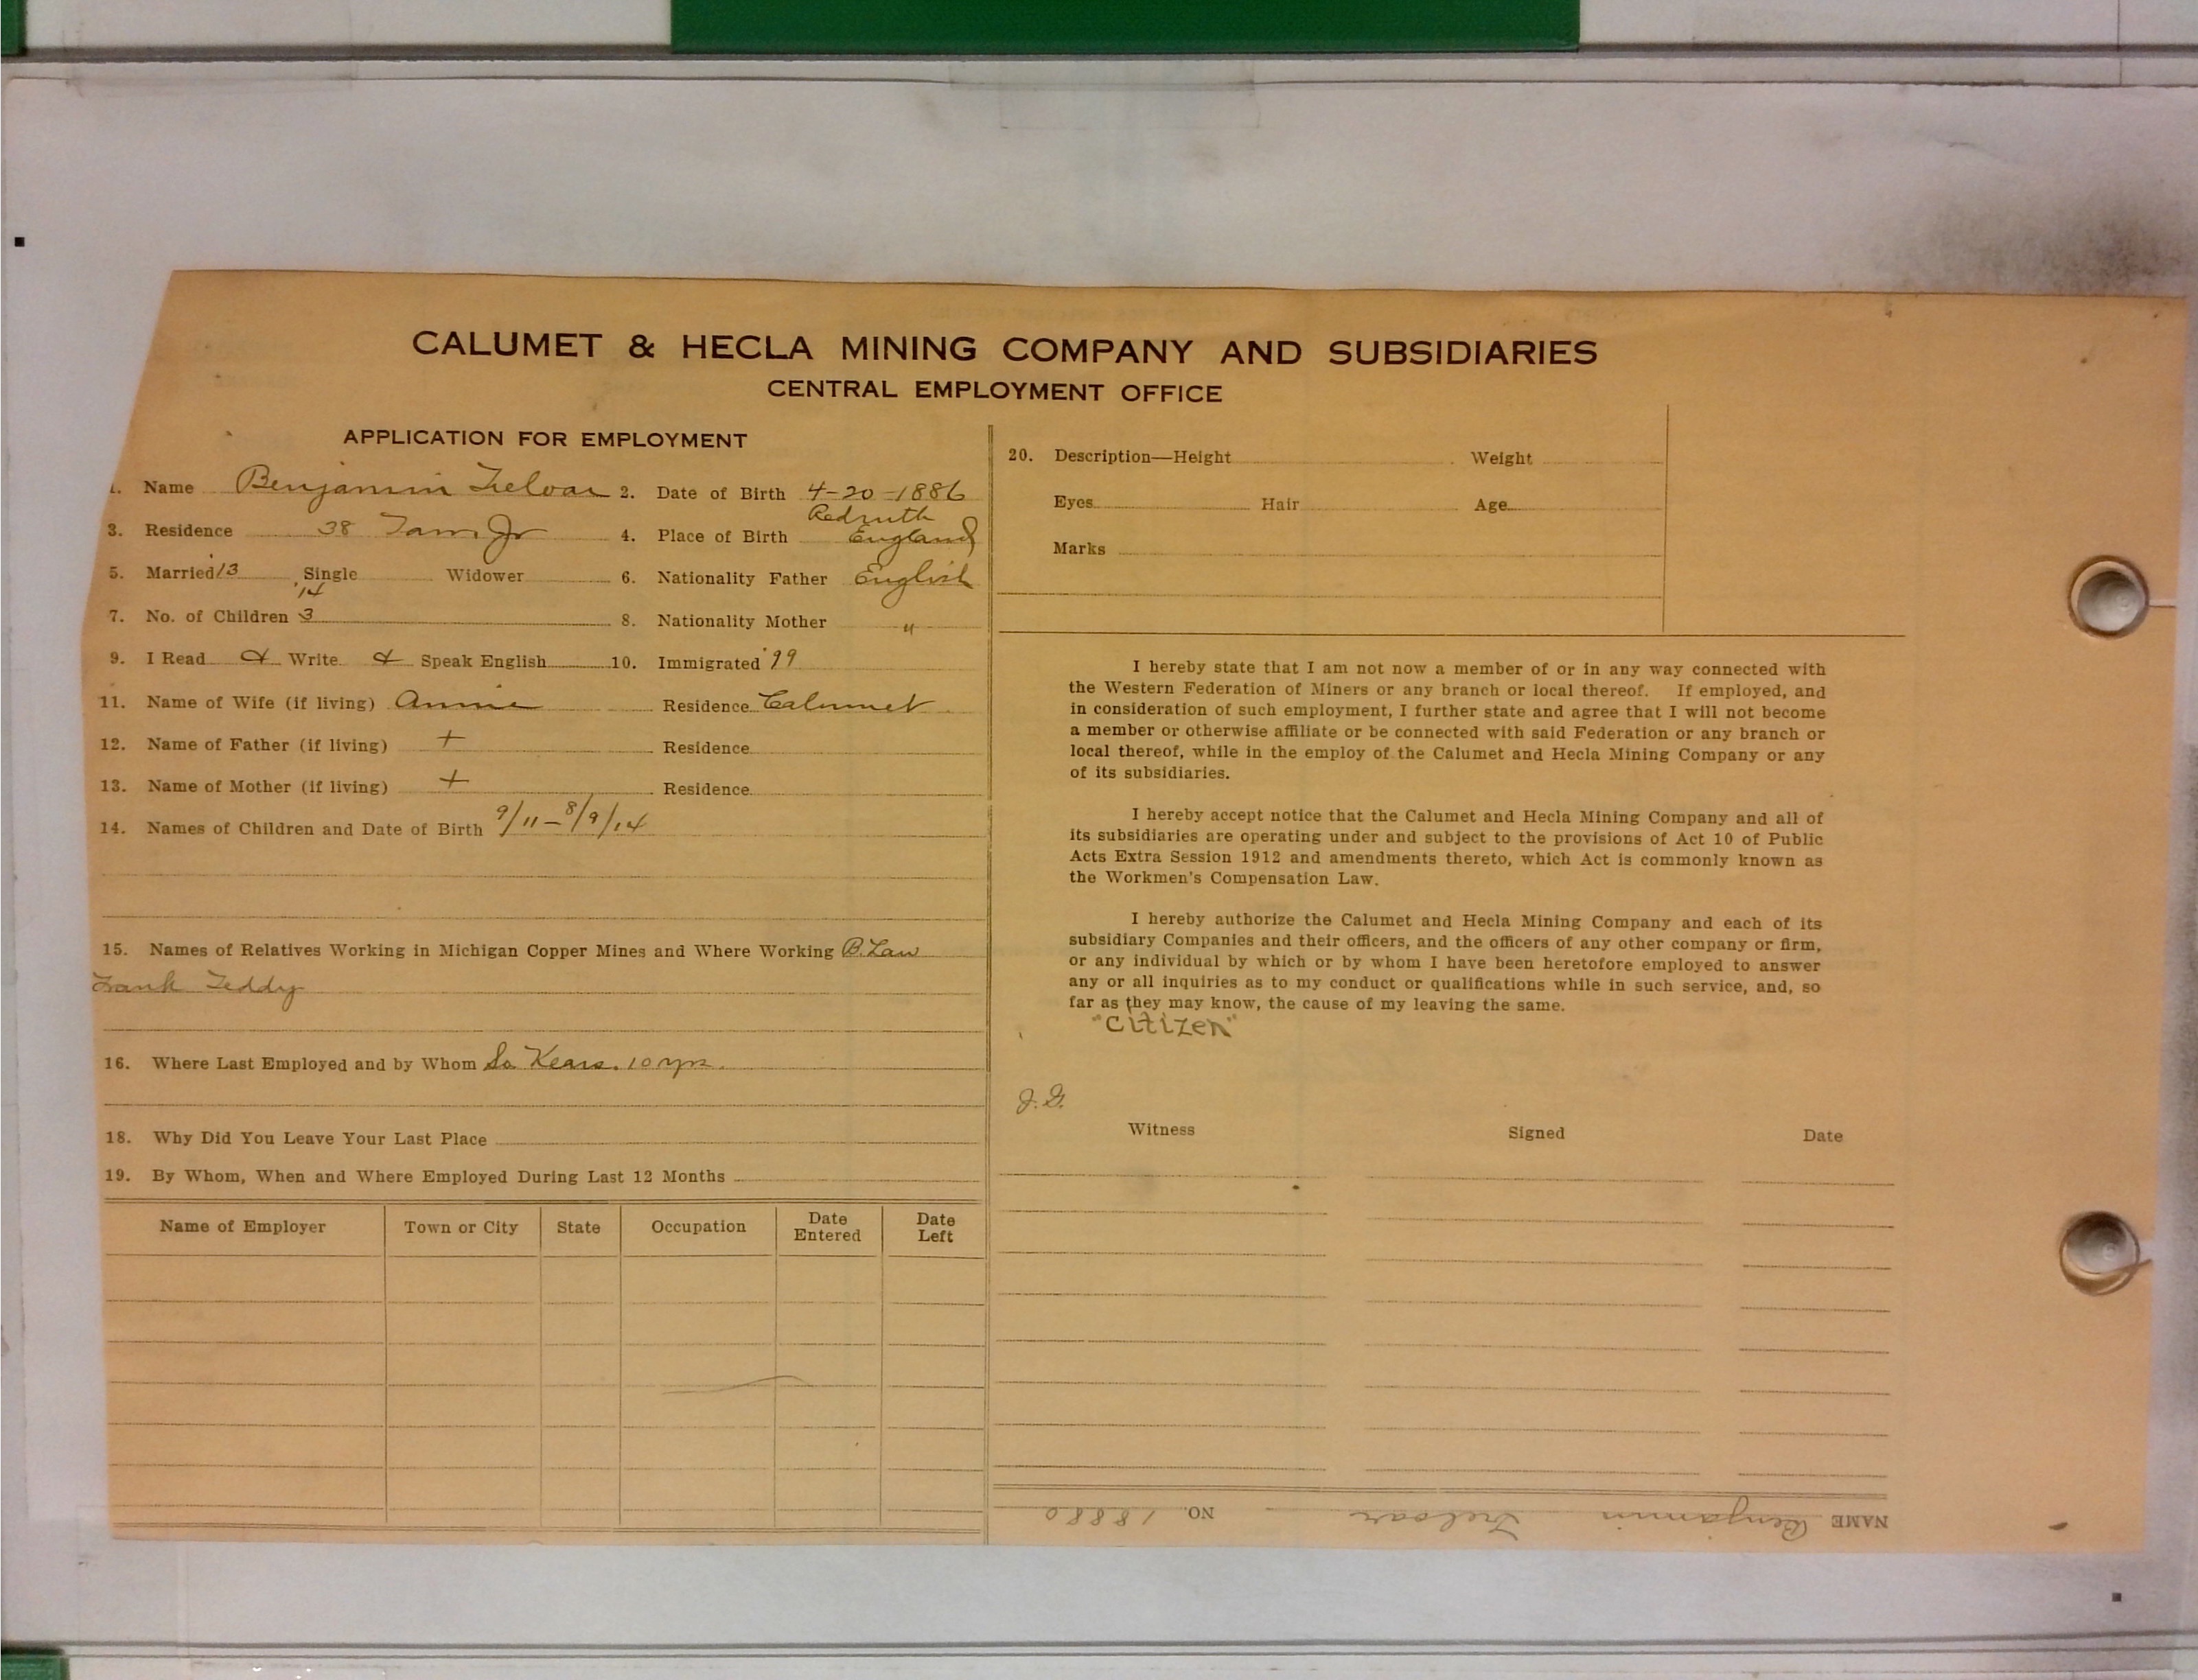 CALUMET & HECLA MINING COMPANY AND SUBSIDIARIES
CENTRAL EMPLOYMENT OFFICE
APPLICATION FOR EMPLOYMENT
1. Name Benjamin Treloar 2. Date of Birth 4-20-1886
3. Residence 38 Tam. Jr 4. Place of Birth Redruth England
5. Married 13 Single Widower 6. Nationality Father English
'14
7. No. of Children 3 8. Nationality Mother "
9. I Read & Write & Speak English 10. Immigrated '99
11. Name of Wife (if living) Annie Residence Calumet
12. Name of Father (if living) + Residence
13. Name of Mother (if living) + Residence
14. Names of Children and Date of Birth 9/11 - 8/9/14
15. Names of Relatives Working in Michigan Copper Mines and Where Working B. Law
Frank Teddy
16. Where Last Employed and by Whom So. Kears. 10 yrs.
18. Why Did You Leave Your Last Place
19. By Whom, When and Where Employed During Last 12 Months
Name of Employer Town or City State Occupation Date Entered Date Left
20. Description—Height Weight
Eyes Hair Age
Marks
I hereby state that I am not now a member of or in any way connected with
the Western Federation of Miners or any branch or local thereof. If employed, and
in consideration of such employment, I further state and agree that I will not become
a member or otherwise affiliate or be connected with said Federation or any branch or
local thereof, while in the employ of the Calumet and Hecla Mining Company or any
of its subsidiaries.
I hereby accept notice that the Calumet and Hecla Mining Company and all of
its subsidiaries are operating under and subject to the provisions of Act 10 of Public
Acts Extra Session 1912 and amendments thereto, which Act is commonly known as
the Workmen's Compensation Law.
I hereby authorize the Calumet and Hecla Mining Company and each of its
subsidiary Companies and their officers, and the officers of any other company or firm,
or any individual by which or by whom I have been heretofore employed to answer
any or all inquiries as to my conduct or qualifications while in such service, and, so
far as they may know, the cause of my leaving the same.
"Citizen"
J.G.
Witness Signed Date
NAME Benjamin Treloar NO. 18880